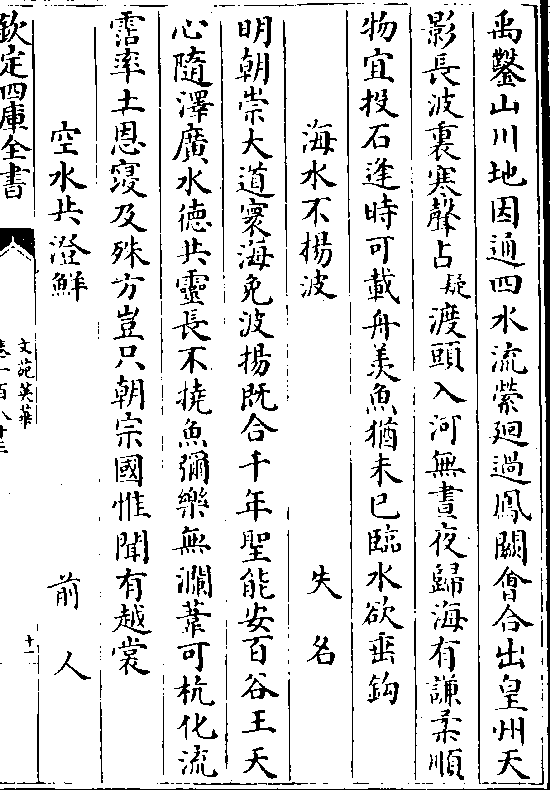 禹鑿山川地因通四水流縈廻過鳳闕㑹合出皇州天
影長波裏寒聲占疑渡頭入河無晝夜歸海有謙柔順
物宜投石逢時可載舟羨魚猶未已臨水欲垂鈎
海水不揚波 失名
明朝崇大道寰海免波揚既合千年聖能安百谷王天
心隨澤廣水德共靈長不撓魚彌樂無瀾葦可杭化流
霑率土恩寖及殊方豈只朝宗國惟聞有越裳
空水共澄鮮 前人
欽定四庫全書
文苑英華
卷一百八十三
十一